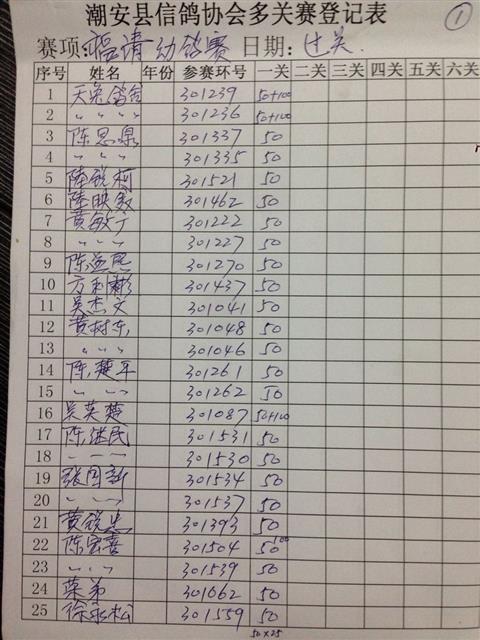 潮安县信鸽协会多关赛登记表 ①
赛项:福清幼鸽赛 日期: 过关.
序号 姓名 年份 参赛环号 一关 二关 三关 四关 五关 六关
1 天象鸽舍 301239 50+100
2 〃 〃 〃 301236 50+100
3 陈思泉 301337 50
4 〃 〃 〃 301335 50
5 陆锐柯 301521 50
6 陆映 301462 50
7 黄敏 301222 50
8 〃 〃 301227 50
9 陈益民 301270 50
10 方利彬 301437 50
11 吴杰文 301041 50
12 黄树东 301048 50
13 〃 〃 301046 50
14 陈楚平 301261 50
15 〃 〃 301262 50
16 吴英楚 301087 50+100
17 陈继民 301531 50
18 〃 〃 301530 50
19 张国新 301534 50
20 〃 〃 301537 50
21 黄锐忠 301393 50
22 陈宏喜 301504 50 100
23 〃 〃 301539 50
24 菜弟 301062 50
25 徐永松 301559 50
50×25